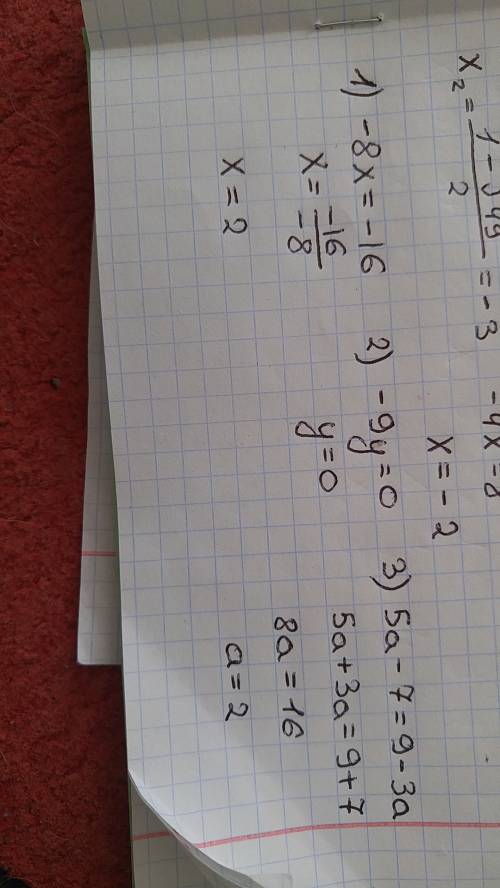 x₂ = (1 - √49)/2 = -3
-4x = 8
x = -2
1) -8x = -16
x = -16/-8
x = 2
2) -9y = 0
y = 0
3) 5a - 7 = 9 - 3a
5a + 3a = 9 + 7
8a = 16
a = 2